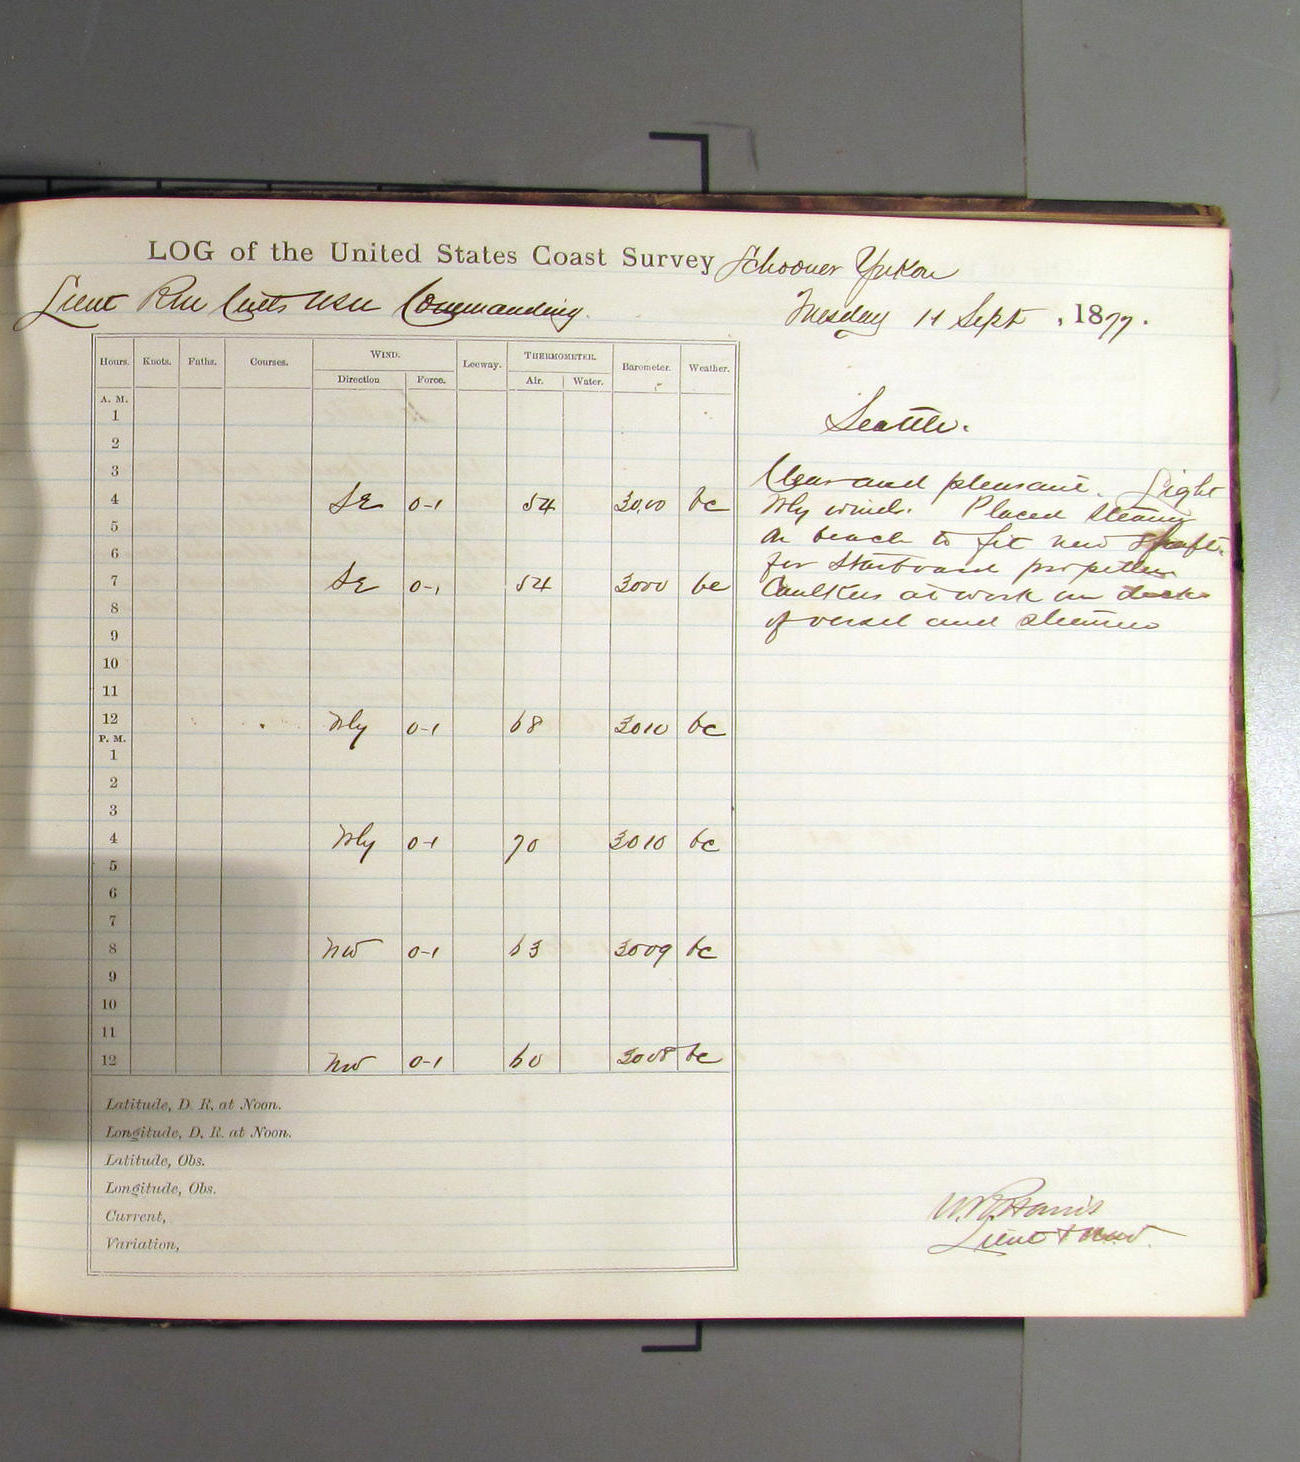 LOG of the United States Coast Survey Schooner Yukon
Lieut RM Cutts USN Commanding.
Tuesday 11 Sept , 1877.
Hours. Knots. Faths. Courses. WIND. Leeway. THERMOMETER. Barometer. Weather.
Direction Force. Air. Water.
A. M.
1
2
3
4 SE 0-1 54 30.00 bc
5
6
7 SE 0-1 54 3000 bc
8
9
10
11
12 Wly 0-1 68 3010 bc
P. M.
1
2
3
4 Wly 0-1 70 3010 bc
5
6
7
8 NW 0-1 63 3009 bc
9
10
11
12 NW 0-1 60 3008 bc
Latitude, D. R. at Noon.
Longitude, D. R. at Noon.
Latitude, Obs.
Longitude, Obs.
Current,
Variation,
Seattle.
Clear and pleasant. Light
Wly winds. Placed steamer
on beach to fit new shaft
for Starboard propeller
Caulkers at work on decks
of vessel and steamer
Harris
Lieut &